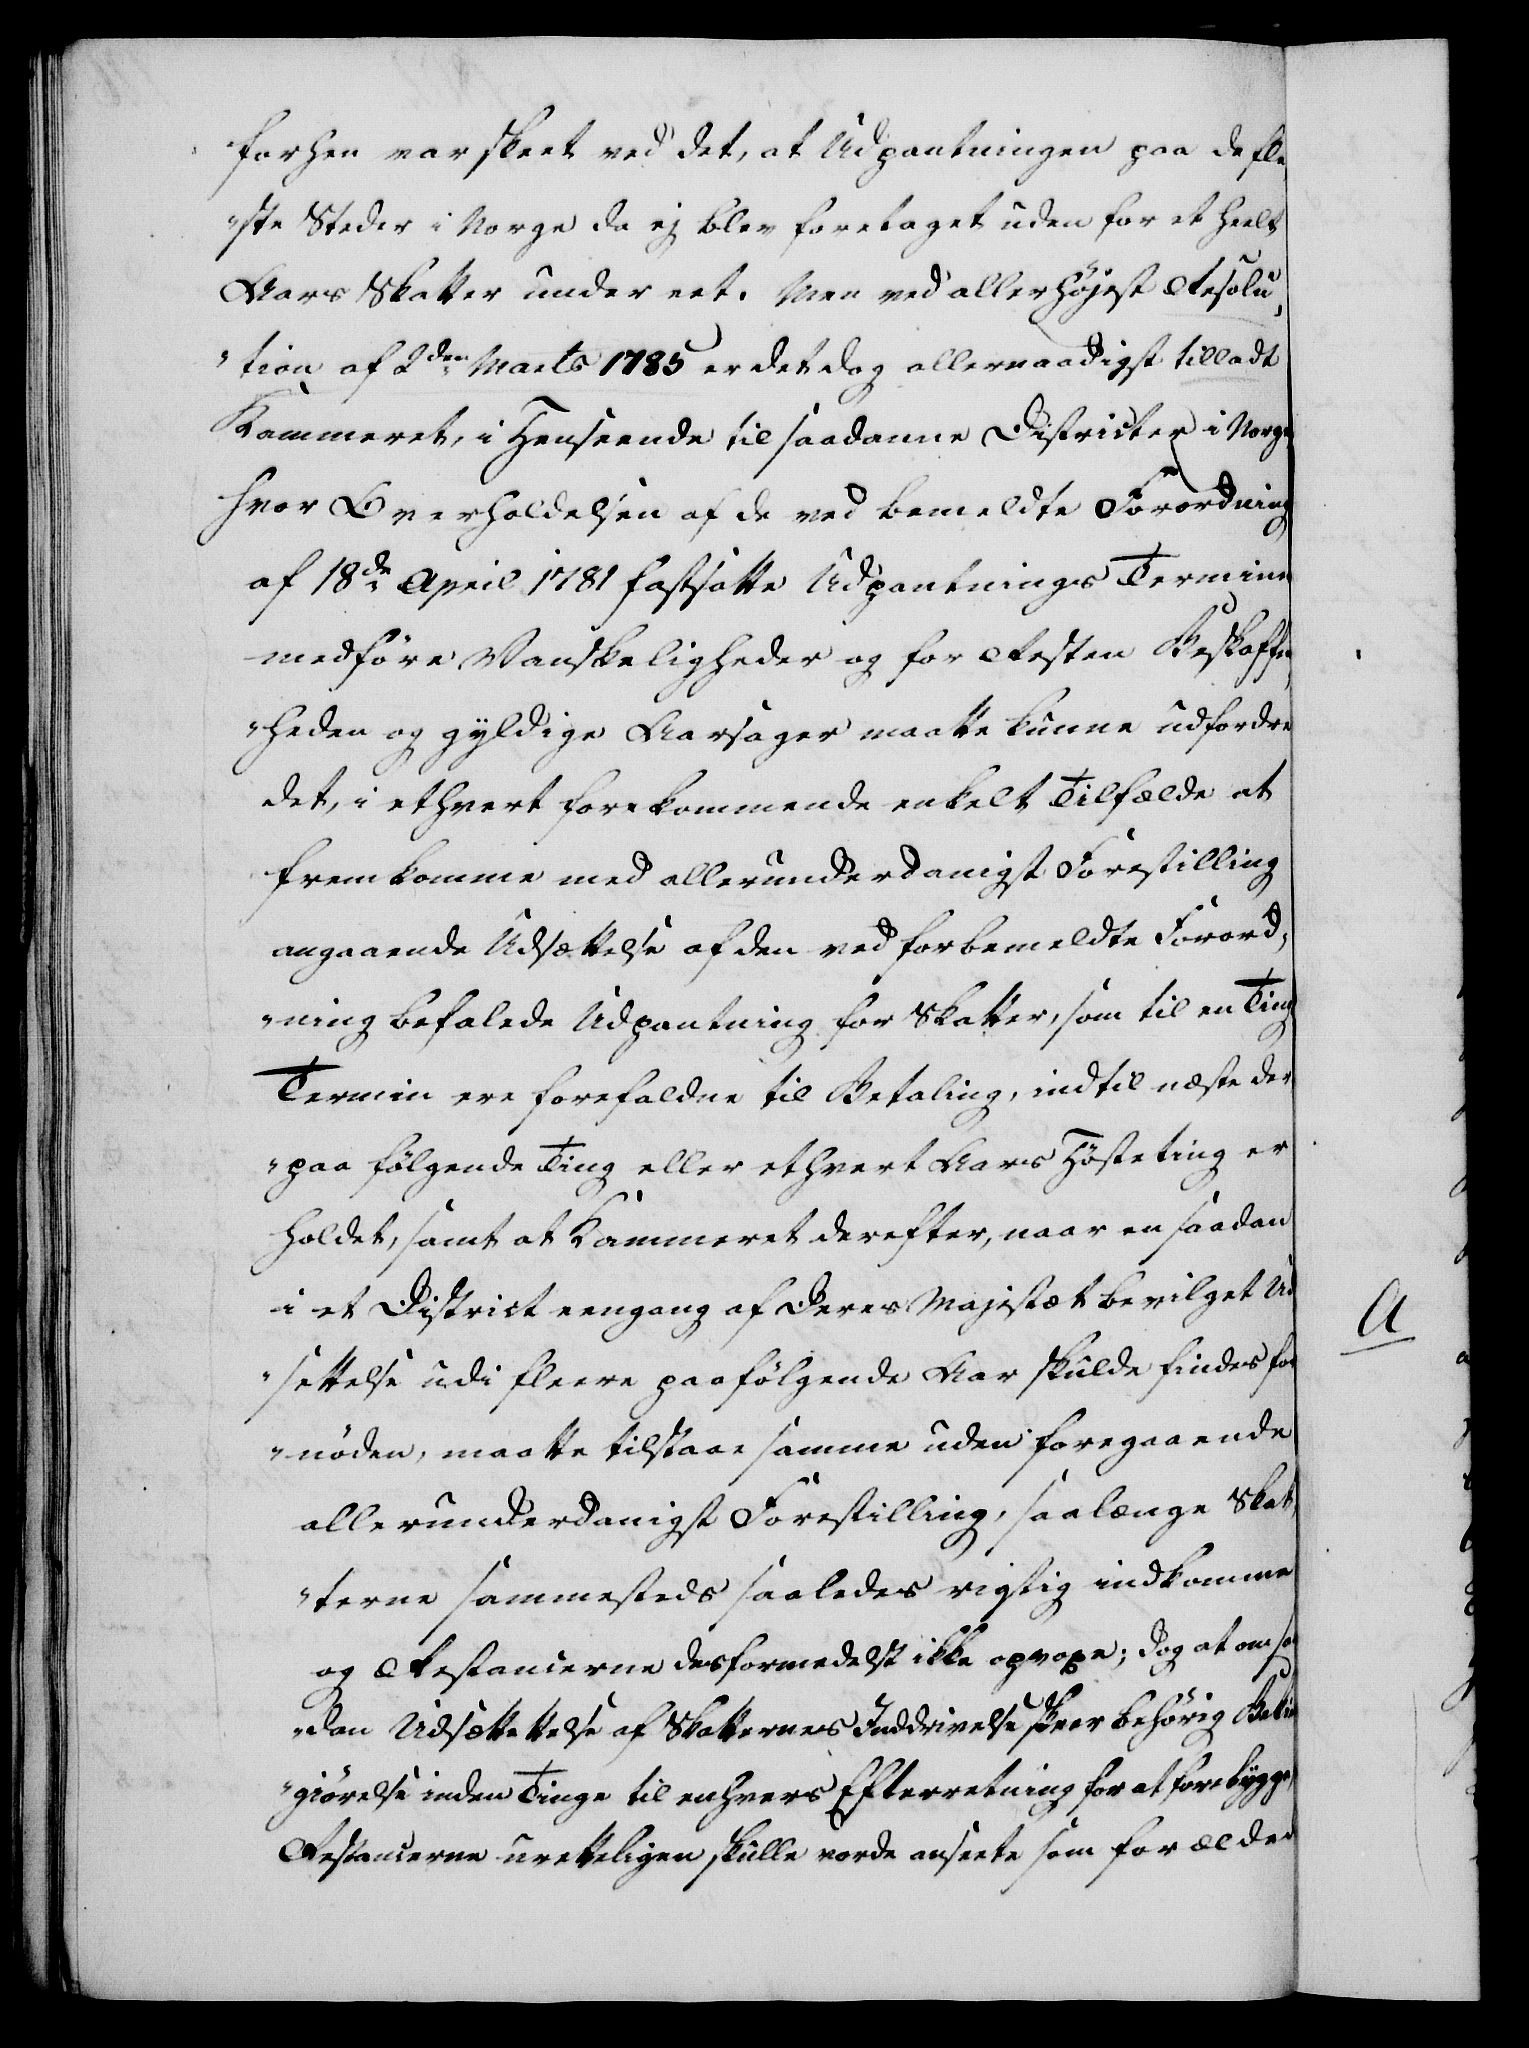 forhen var skeet ved det, at Udpantningen paa de fle
"ste Steder i Norge da ej blev foretaget uden for et heelt
Aars Skatter under eet. Men ved allerhøjest Resolu„
"tion af 2den Marts 1785 er det dog allernaadigst tilladt
Kammeret, i Henseende til saadanne Districter i Norge
hvor Overholdelsen af de ved bemeldte Forordning
af 18de April 1781 fastsatte Udpantnings Terminer
medføre Vanskeligheder og for Resten Beskaffen„
"heden og gyldige Aarsager maatte kunne udfordre
det, i ethvert forekommende enkelt Tilfælde at
fremkomme med allerunderdanigst Forestilling
angaaende Udsættelse af den ved forbemeldte Forord„
"ning befalede Udpantning for Skatter, som til en Ting
Termin ere forefaldne til Betaling, indtil næste der
"paa følgende Ting eller ethvert Aars Høsteting er
holdet, samt at Kammeret derefter, naar en saadan
i et District eengang af Deres Majestæt bevilget Ud
"settelse udi fleere paafølgende Aar skulde findes for
"nøden, maatte tilstaae samme uden foregaaende
allerunderdanigst Forestilling, saalænge Skat„
"terne sammesteds saaledes rigtig indkomme
og Restancerne desformedelst ikke opvoxe; dog at om saa
"dan Udsættettelse af Skatternes Inddrivelse skeer behørig Bekien
"giørelse inden Tinge til enhvers Efterretning for at forebygge,
Restancerne uretteligen skulle vorde ansete som for ælder
A